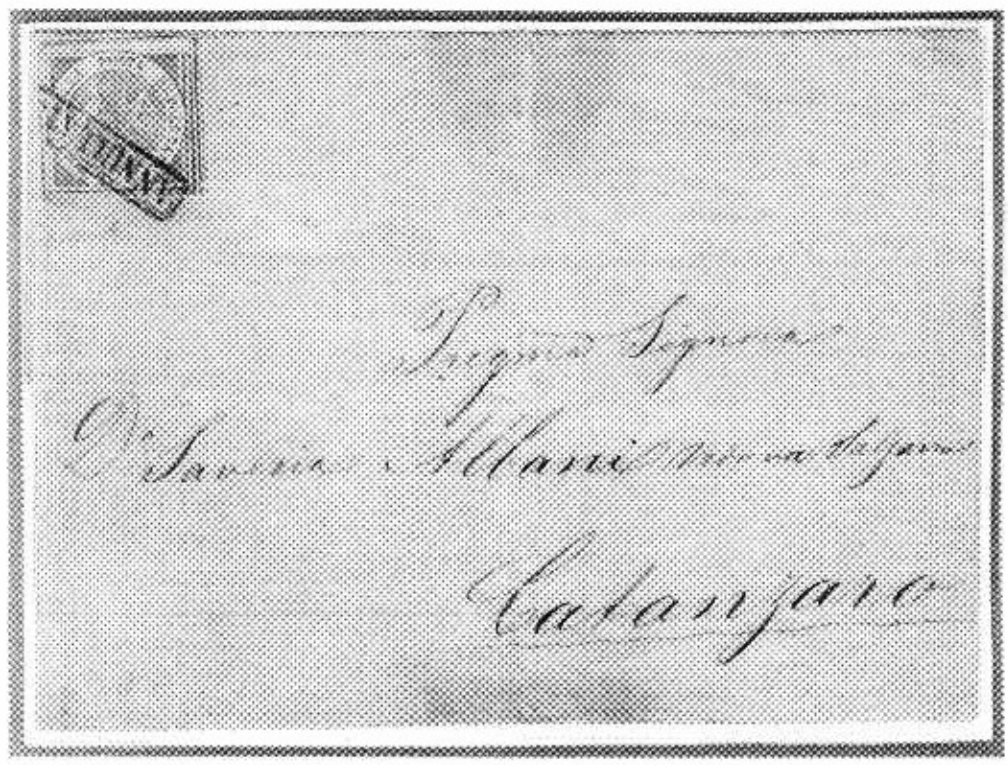 ANNULLATO
Pregma Signora
Da Saveria Albani
Catanzaro